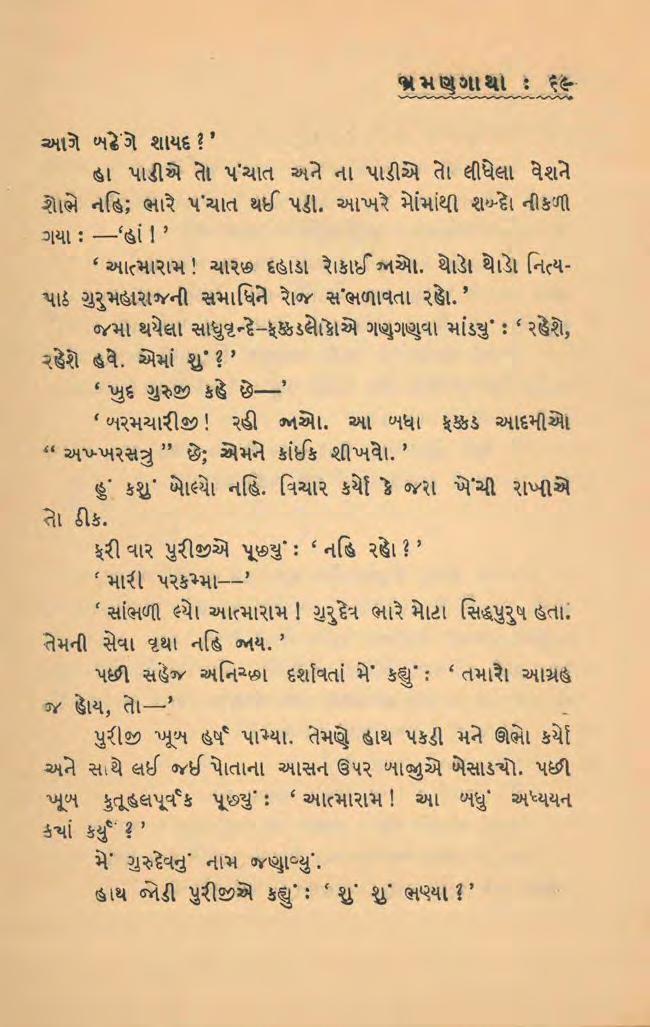 ભ્રમણગાથા : ૬૯
આગે બઢેંગે શાયદ ?’
હા પાડીએ તો પંચાત અને ના પાડીએ તો લીધેલા વેશને
શોભે નહિ; ભારે પંચાત થઈ પડી. આખરે મોંમાંથી શબ્દો નીકળી
ગયા : —‘હાં !’
‘ આત્મારામ ! ચારછ દહાડા રોકાઈ જાઓ. થોડો થોડો નિત્ય-
પાઠ ગુરુમહારાજની સમાધિને રોજ સંભળાવતા રહો.’
જમા થયેલા સાધુવૃન્દે–ફક્કડલોકોએ ગણગણવા માંડ્યું : ‘ રહેશે,
રહેશે હવે. એમાં શું ?’
‘ ખુદ ગુરુજી કહે છે—’
‘ બરમચારીજી ! રહી જાઓ. આ બધા ફક્કડ આદમીઓ
“ અખ્ખરસત્રુ ” છે; એમને કાંઈક શીખવો.’
હું કશું બોલ્યો નહિ. વિચાર કર્યો કે જરા ખેંચી રાખીએ
તો ઠીક.
ફરી વાર પુરીજીએ પૂછ્યું : ‘ નહિ રહો ?’
‘ મારી પરકમ્મા——’
‘ સાંભળી લ્યો આત્મારામ ! ગુરુદેવ ભારે મોટા સિદ્ધપુરુષ હતા.
તેમની સેવા વૃથા નહિ જાય.’
પછી સહેજ અનિચ્છા દર્શાવતાં મેં કહ્યું : ‘ તમારો આગ્રહ
જ હોય, તો—’
પુરીજી ખૂબ હર્ષ પામ્યા. તેમણે હાથ પકડી મને ઊભો કર્યો
અને સાથે લઈ જઈ પોતાના આસન ઉપર બાજુએ બેસાડ્યો. પછી
ખૂબ કુતૂહલપૂર્વક પૂછ્યું : ‘ આત્મારામ ! આ બધું અધ્યયન
ક્યાં કર્યું ?’
મેં ગુરુદેવનું નામ જણાવ્યું.
હાથ જોડી પુરીજીએ કહ્યું : ‘ શું શું ભણ્યા ?’